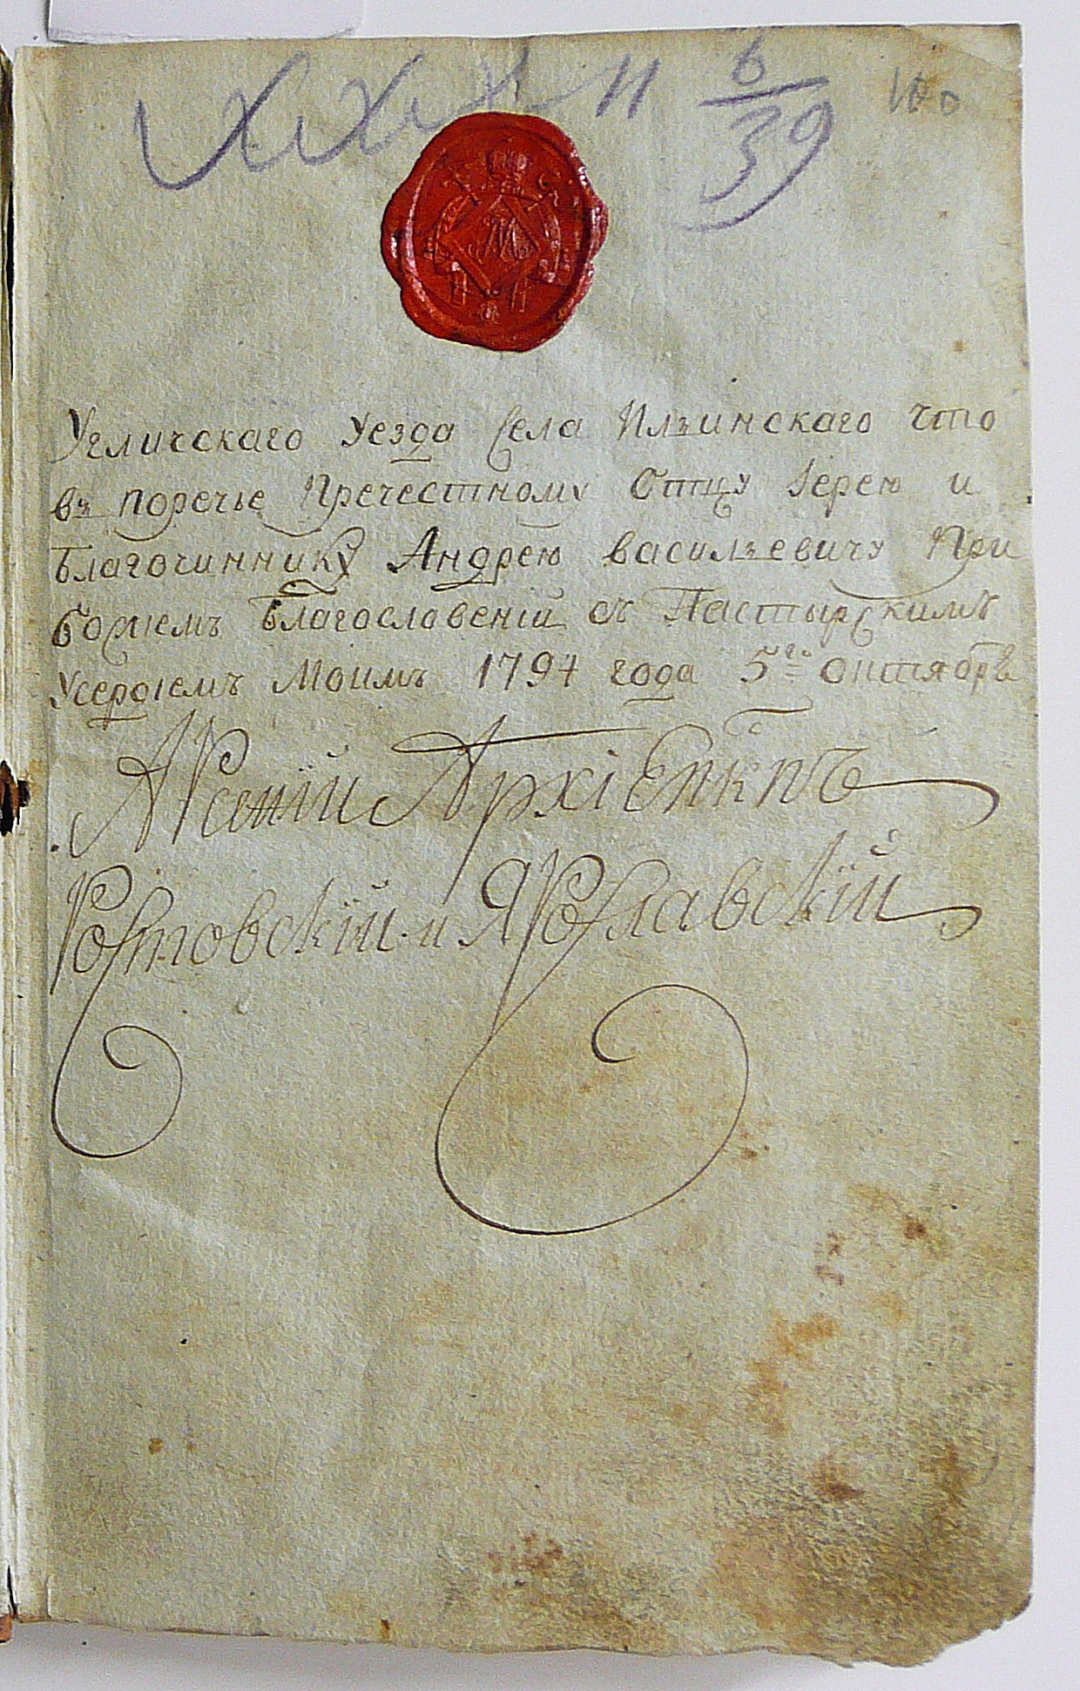 XXX 11 6/39
100
Угличскаго уезда Села Илъинскаго что
въ поречье Пречестному Отцу Iерею и
благочиннику Андрею василъевичу При
божiемъ благословенiи съ Пастырскимъ
усердiемъ Моимъ 1794 года 5го октября
Арсенiй АрхiЕпкпъ
Ростовскiй и Ярославскiй